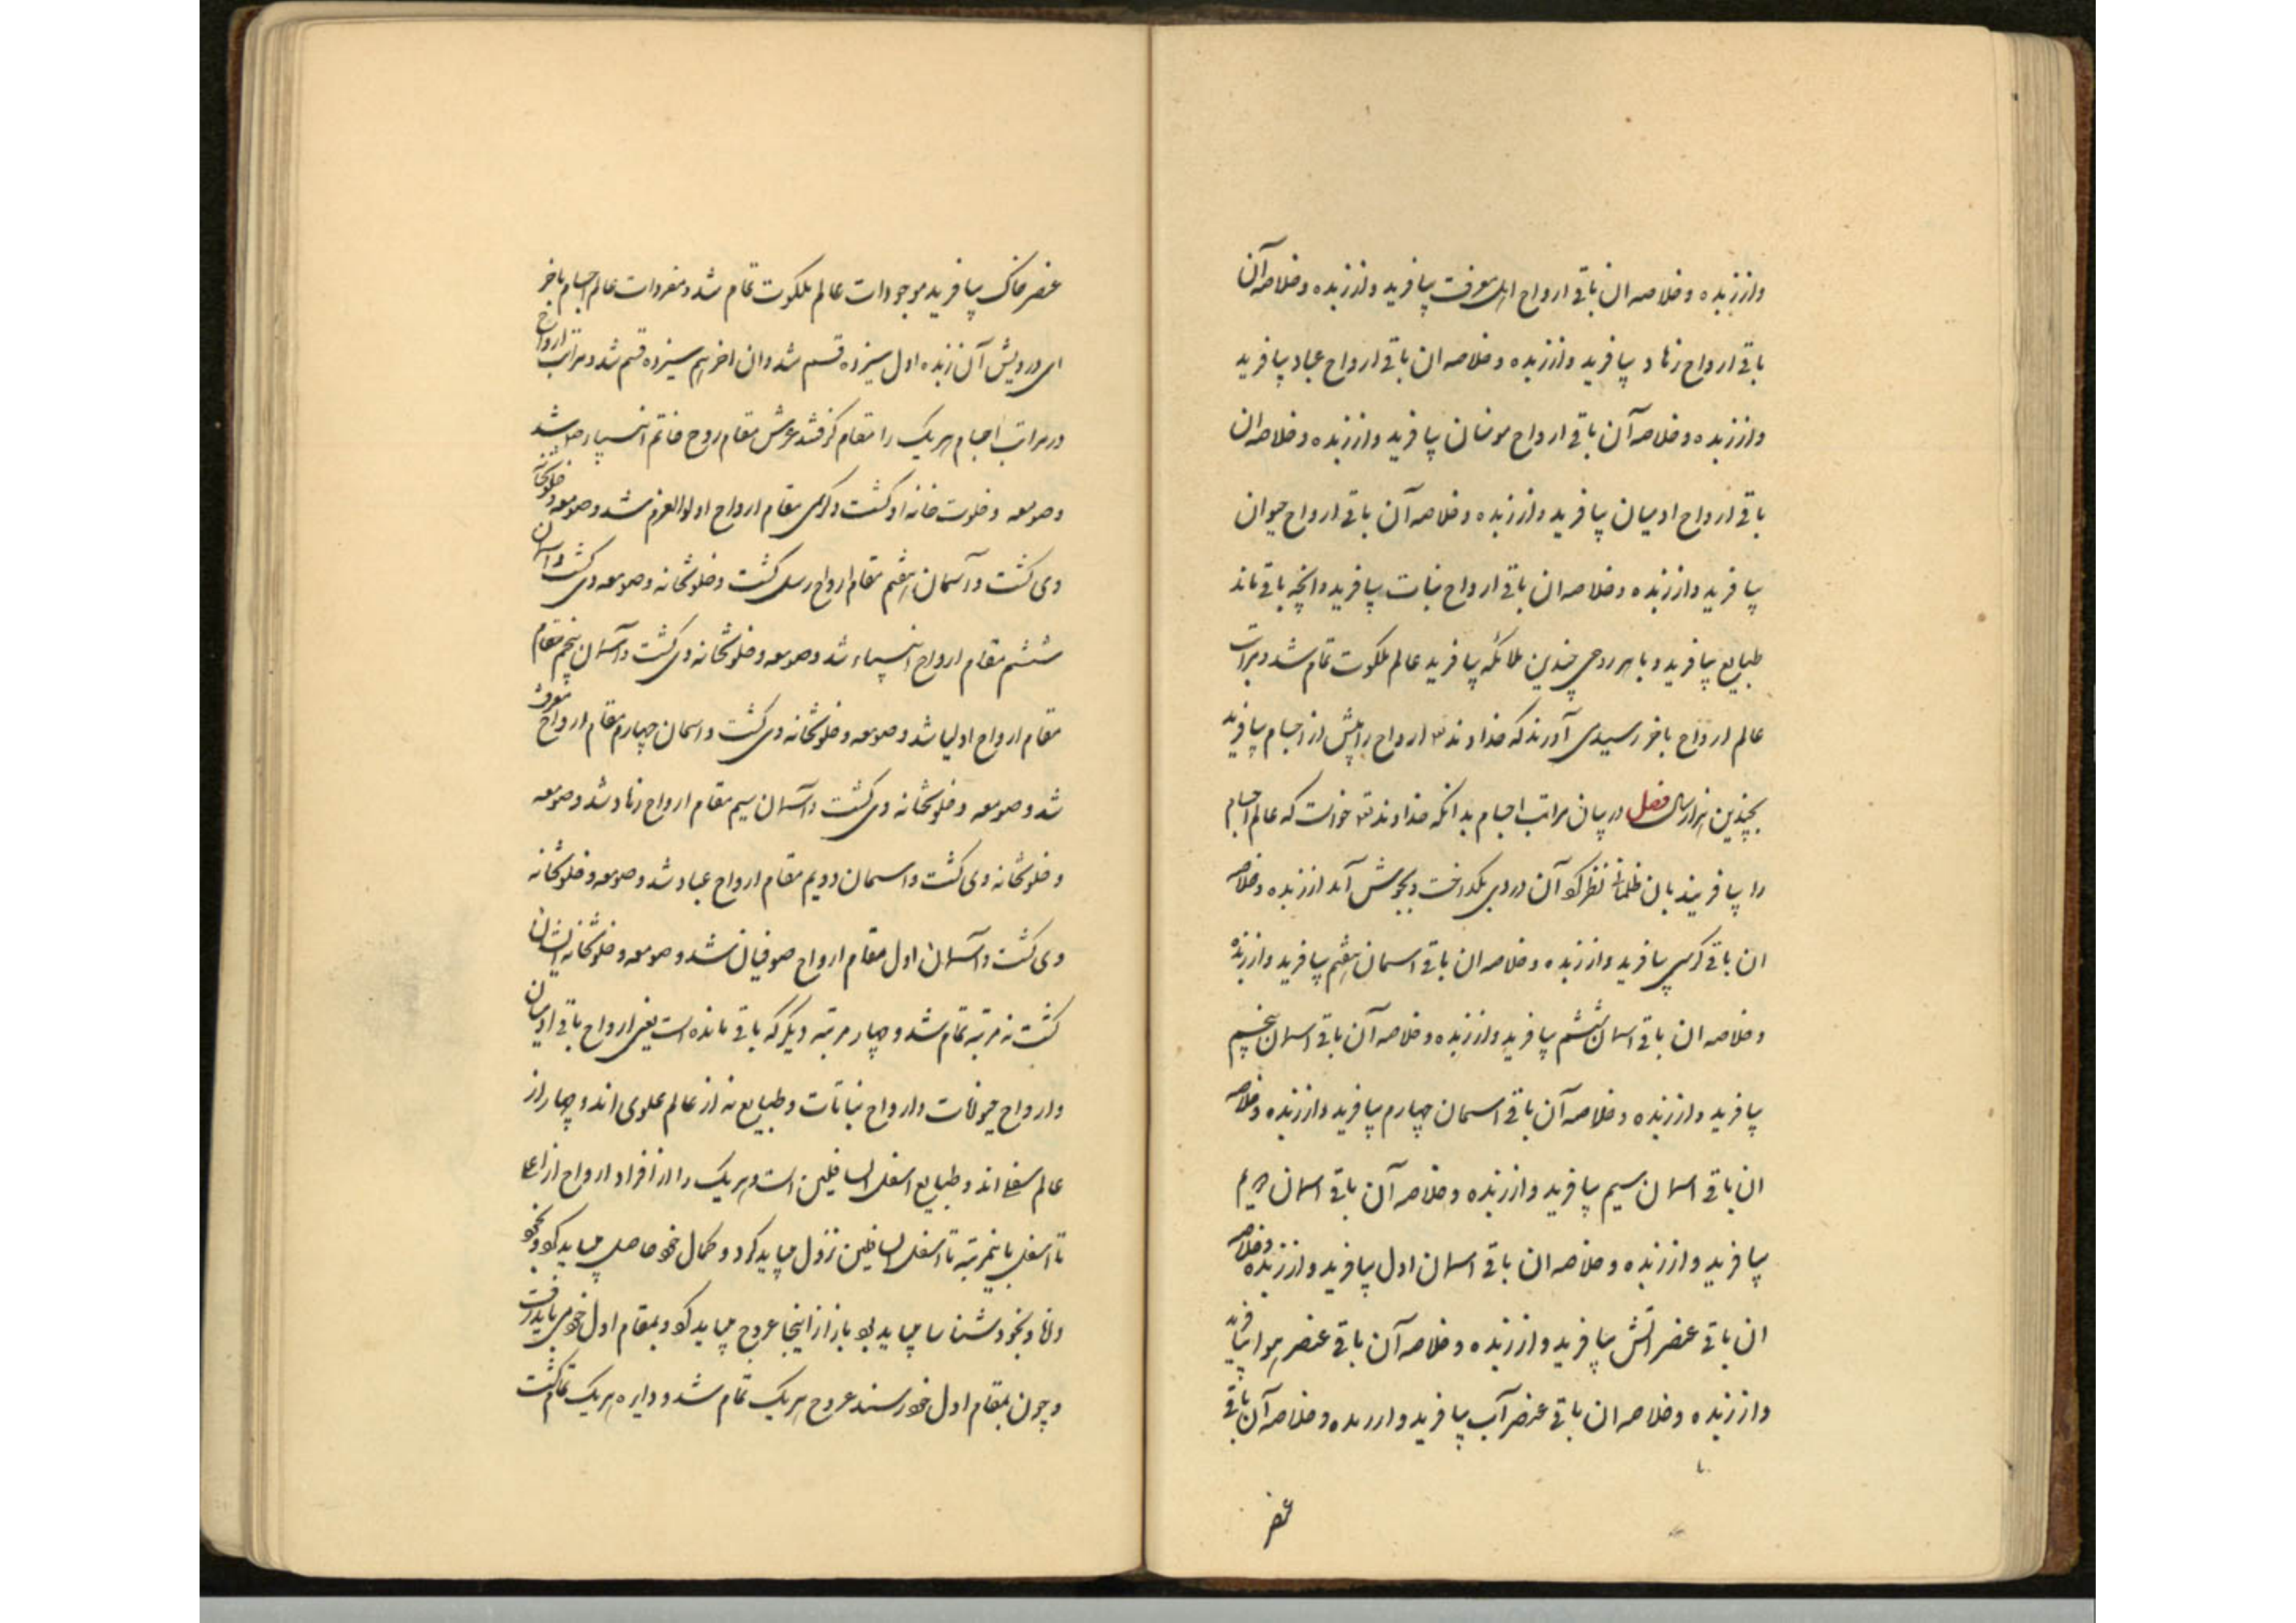 واز زبده و خلاصه ان باقی ارواح اهل معرفت بیافرید واز زبده و خلاصه آن
باقی ارواح زهاد بیافرید واز زبده و خلاصه ان باقی ارواح عباد بیافرید
واز زبده و خلاصه آن باقی ارواح مومنان بیافرید واز زبده و خلاصه ان
باقی ارواح ادمیان بیافرید واز زبده و خلاصه آن باقی ارواح حیوان
بیافرید واز زبده و خلاصه ان باقی ارواح نبات بیافرید وانچه باقی ماند
طبایع بیافرید و با هر روحی چندین ملائکه بیافرید عالم ملکوت تمام شد و مراتب
عالم ارواح باخر رسید می آورند که خداوند تع ارواح را پیش از اجسام بیافرید
بچندین هزار سال فصل در بیان مراتب اجسام بدانکه خداوند تع خواست که عالم اجسام
را بیافریند بان ظلمانی نظر کرد آن دردی بگداخت و بجوش آمد از زبده و خلاصه
ان باقی کرسی بیافرید واز زبده و خلاصه ان باقی اسمان هفتم بیافرید واز زبده
و خلاصه ان باقی اسمان ششم بیافرید واز زبده و خلاصه آن باقی اسمان پنجم
بیافرید واز زبده و خلاصه آن باقی اسمان چهارم بیافرید واز زبده و خلاصه
ان باقی اسمان سیم بیافرید واز زبده و خلاصه آن باقی اسمان دویم
بیافرید واز زبده و خلاصه ان باقی اسمان اول بیافرید واز زبده و خلاصه
ان باقی عنصر اتش بیافرید واز زبده و خلاصه آن باقی عنصر هوا بیافرید
واز زبده و خلاصه ان باقی عنصر آب بیافرید واز زبده و خلاصه آن باقی
عنصر
عنصر خاک بیافرید موجودات عالم ملکوت تمام شد و مفردات عالم اجسام باخر
ای درویش آن زبده اول سیزده قسم شد وان اخر هم سیزده قسم شد و مراتب ارواح
در مراتب اجسام هریک را مقام گرفتند عرش مقام روح خاتم انبیا شد
وصومعه و خلوت خانه او کشت وکرسی مقام ارواح اولوالعزم شد وصومعه و خلوتخانه
وی کشت و آسمان هفتم مقام ارواح رسل کشت وخلوتخانه وصومعه وی کشت و آسمان
ششم مقام ارواح انبیاء شد وصومعه و خلوتخانه وی کشت و آسمان پنجم مقام
مقام ارواح اولیا شد وصومعه و خلوتخانه وی کشت واسمان چهارم مقام ارواح معرفت
شد وصومعه و خلوتخانه وی کشت و آسمان سیم مقام ارواح زهاد شد وصومعه
و خلوتخانه وی کشت واسمان دویم مقام ارواح عباد شد وصومعه و خلوتخانه
وی کشت و آسمان اول مقام ارواح صوفیان شد وصومعه و خلوتخانه ایشان
کشت نه مرتبه تمام شد و چهار مرتبه دیگر که باقی مانده است یعنی ارواح باقی ادمیان
وارواح حیوانات وارواح نباتات وطبایع نه از عالم علوی اند و چهار از
عالم سفلی اند وطبایع اسفل السافلین است وهریک را از افراد ارواح از اعلی
تا اسفل باین مرتبه تا اسفل السافلین نزول میباید کرد و کمال خود حاصل میباید کرد وبخود
دانا و بخود شناسا میباید بود باز از اینجا عروج میباید کرد و بمقام اول خود می باید رفت
وچون بمقام اول خود رسند عروج هریک تمام شد و دایره هریک تمام کشت